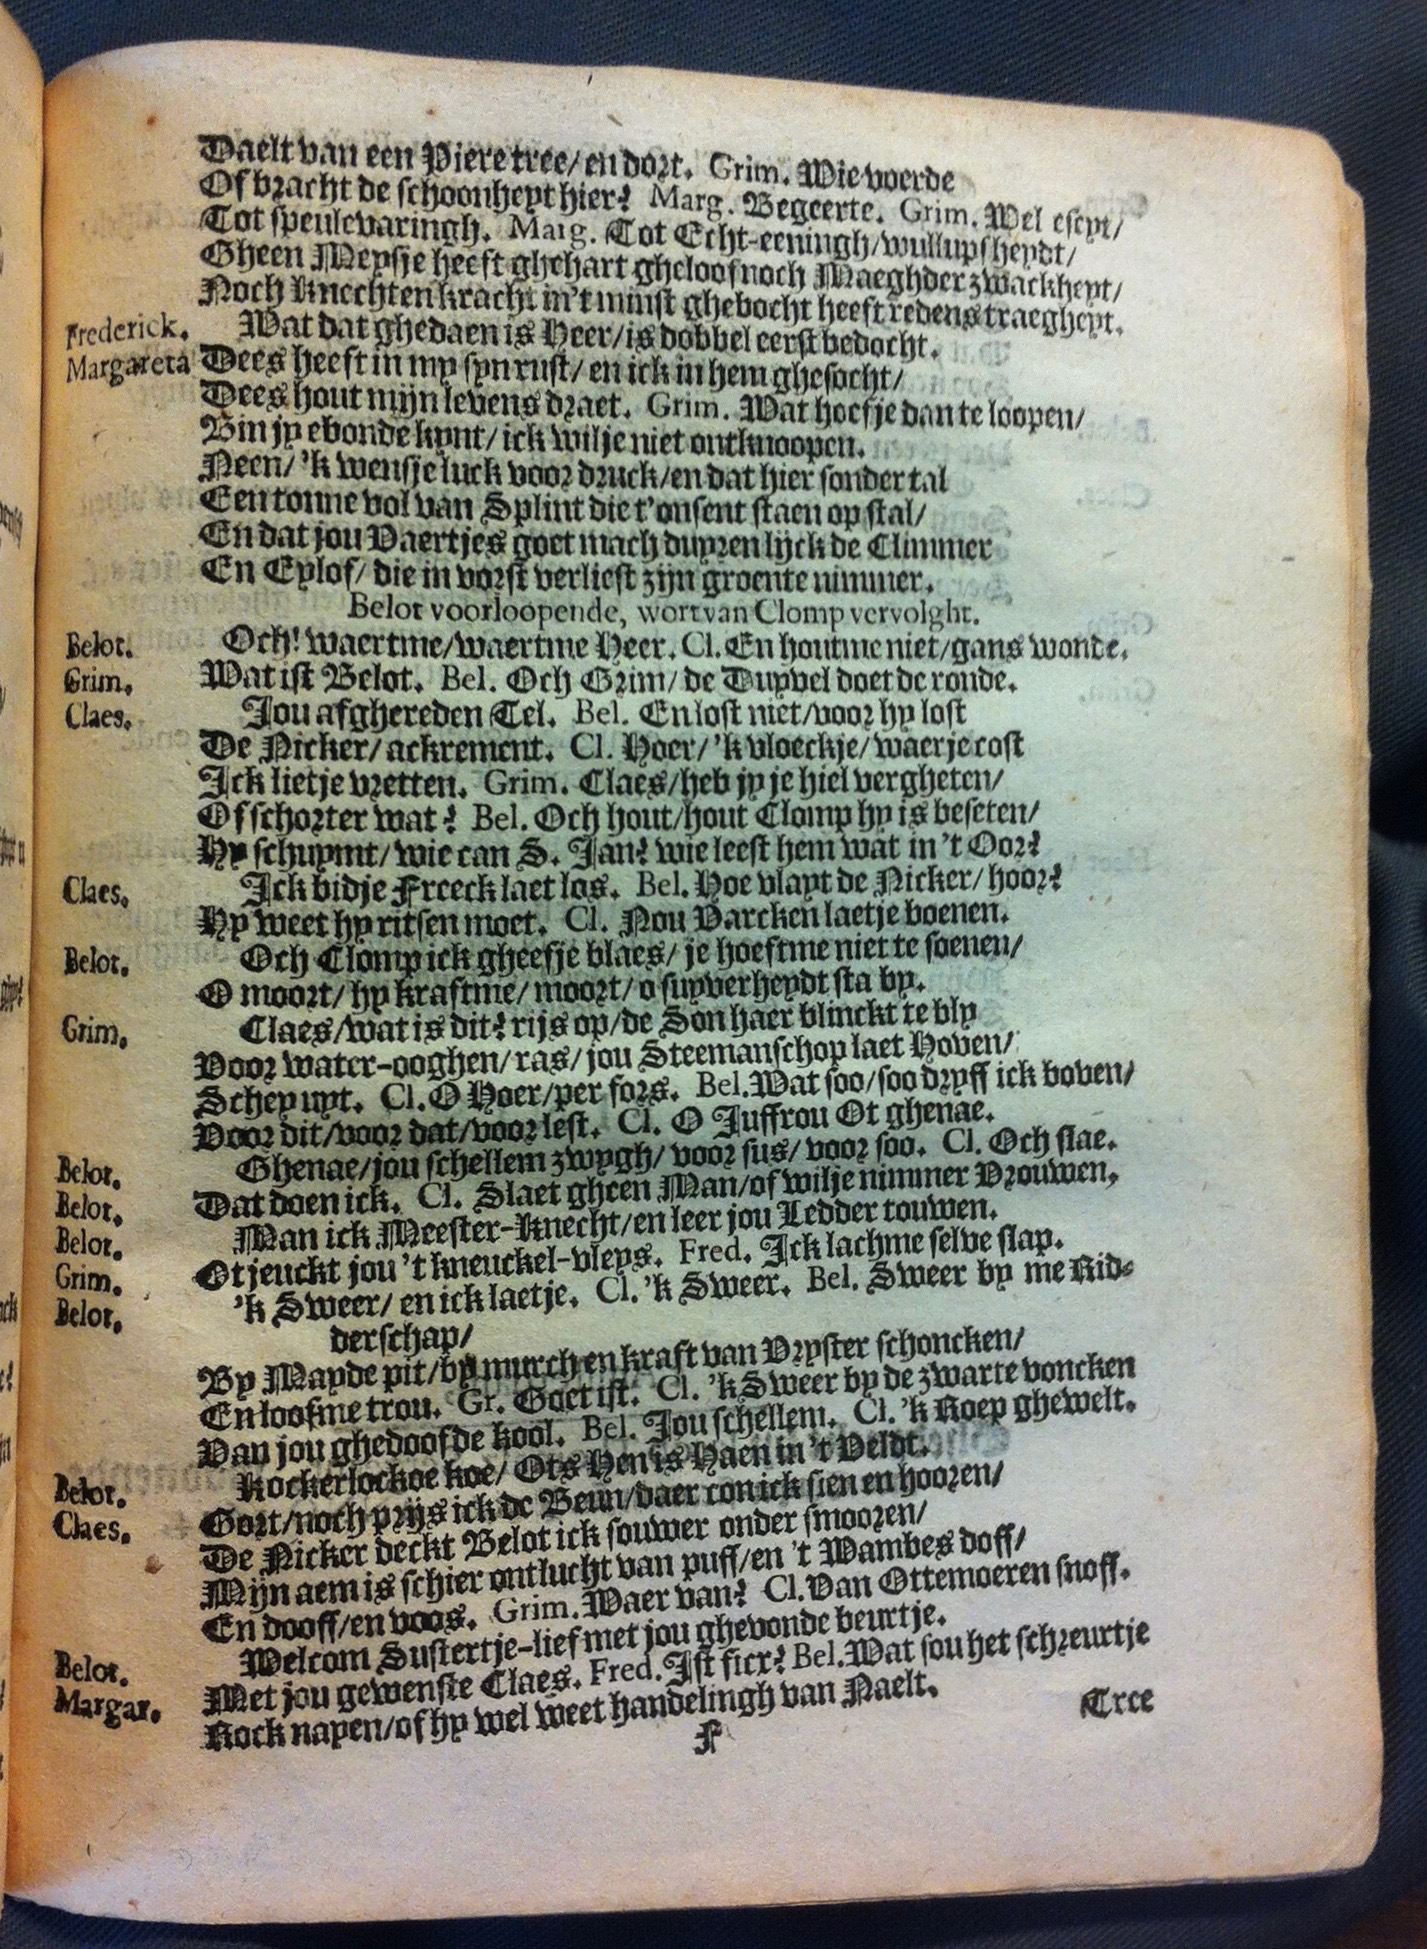 Daelt van een Piere tree/ en dort. Grim. Wie voerde
Of bracht de schoonheyt hier? Marg. Begeerte. Grim. Wel eseyt/
Tot speulevaringh. Marg. Tot Echt-eeningh/wullupsheydt/
Gheen Meysje heeft ghehart gheloof noch Maeghder zwackheyt/
Noch knechten kracht in't minst ghebocht heeft redens traegheyt.
Frederick. Wat dat ghedaen is Heer/is dobbel eerst bedocht.
Margareta Dees heeft in my syn rust/ en ick in hem ghesocht/
Dees hout mijn levens draet. Grim. Wat hoefje dan te loopen/
Bin jy ebonde kynt/ ick wilje niet ontknoopen.
Neen/ 'k wensje luck voor druck/en dat hier sonder tal
Een tonne vol van Splint die t'onsent staen op stal/
En dat jou Vaertjes goet mach duyren lijck de Climmer
En Eylof/ die in vorst verliest zijn groente nimmer.
Belot voorloopende, wort van Clomp vervolght.
Belot. Och! waertme/waertme Heer. Cl. En houtme niet/gans wonde.
Grim. Wat ist Belot. Bel. Och Grim/ de Duyvel doet de ronde.
Claes. Jou afghereden Tel. Bel. En lost niet/voor hy lost
De Nicker/ ackrement. Cl. Hoer/ 'k vloeckje/ waerje cost
Ick lietje vretten. Grim. Claes/heb jy je hiel vergheten/
Of schorter wat? Bel. Och hout/hout Clomp hy is beseten/
Hy schuymt/ wie can S. Jan? wie leest hem wat in 't Oor?
Claes. Ick bidje Freeck laet los. Bel. Hoe vlayt de Nicker/ hoor?
Hy weet hy ritsen moet. Cl. Nou Varcken laetje boenen.
Belot. Och Clomp ick gheefje blaes/ je hoeftme niet te soenen/
O moort/ hy kraftme/ moort/ o suyverheydt sta by.
Grim. Claes/wat is dit? rijs op/de Son haer blinckt te bly
Voor water-ooghen/ ras/ jou Steemanschop laet Hoven/
Schey uyt. Cl. O Hoer/per fors. Bel. Wat soo/soo dryff ick boven/
Voor dit/voor dat/voor lest. Cl. O Juffrou Ot ghenae.
Belot. Ghenae/jou schellem zwygh/ voor sus/ voor soo. Cl. Och slae.
Belot. Dat doen ick. Cl. Slaet gheen Man/of wilje nimmer Vrouwen,
Belot. Man ick Meester-knecht/en leer jou Ledder touwen.
Grim. Ot jeuckt jou 't kneuckel-vleys. Fred. Ick lachme selve slap.
Belot. 'k Sweer/ en ick laetje. Cl. 'k Sweer. Bel. Sweer by me Rid-
derschap/
By Mayde pit/by murch en kraft van Vryster schoncken/
En loofme trou. Gr. Goet ist. Cl. 'k Sweer by de zwarte voncken
Van jou ghedoofde kool. Bel. Jou schellem. Cl. 'k Roep ghewelt.
Belot. Kockerlockoe koe/ Ots Hen is Haen in 't Veldt.
Claes. Gort/noch prijs ick de Beun/daer con ick sien en hooren/
De Nicker deckt Belot ick souwer onder smooren/
Mijn aem is schier ontlucht van puff/en 't Wambes doff/
En dooff/en voos. Grim. Waer van? Cl. Van Ottemoeren snoff.
Belot. Welcom Sustertje-lief met jou ghevonde beurtje.
Margar. Met jou gewenste Claes. Fred. Ist fier? Bel. Wat sou het schreurtje
Rock napen/of hy wel weet handelingh van Naelt.
F
Tree